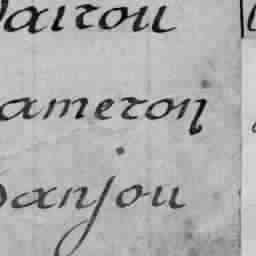 airou
ameron
anjou